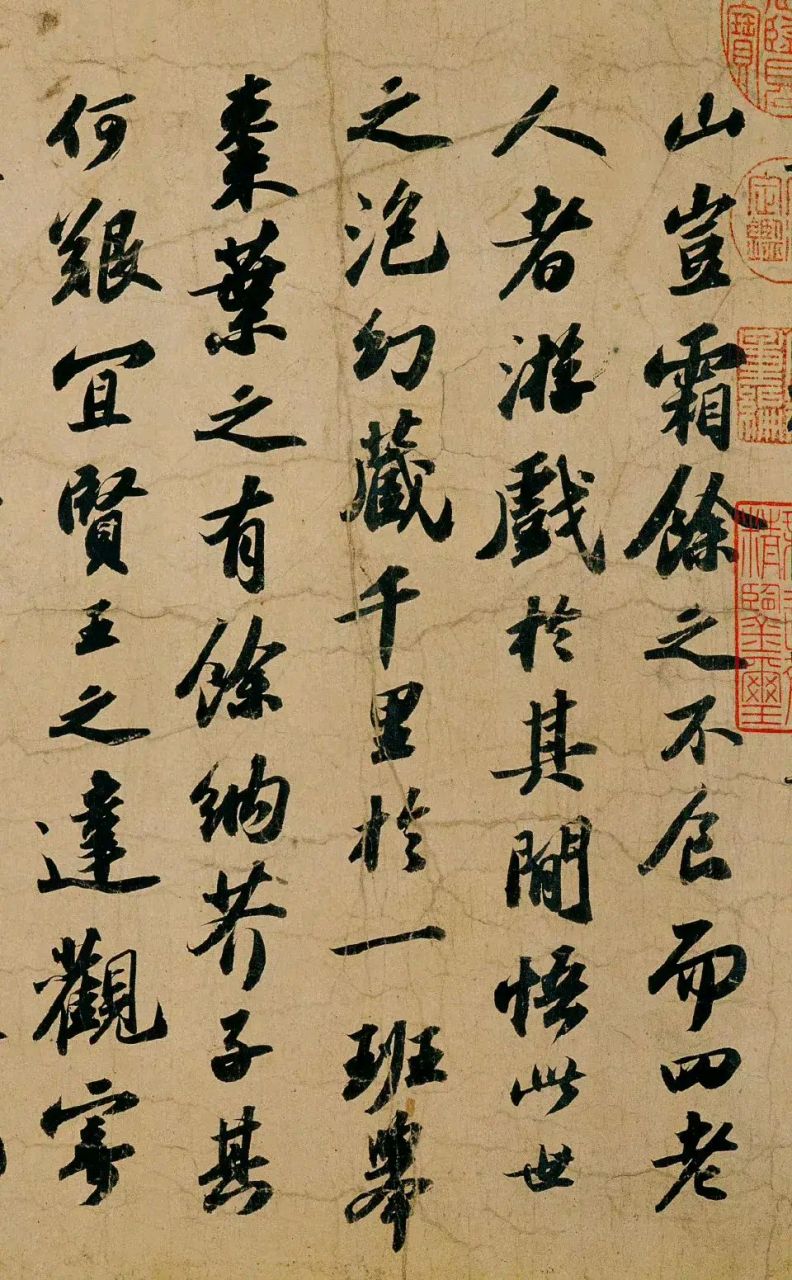 山豈霜餘之不食而四老
人者游戲於其間悟此世
之泡幻藏千里於一班舉
棗葉之有餘納芥子其
何艱宜賢王之達觀寄